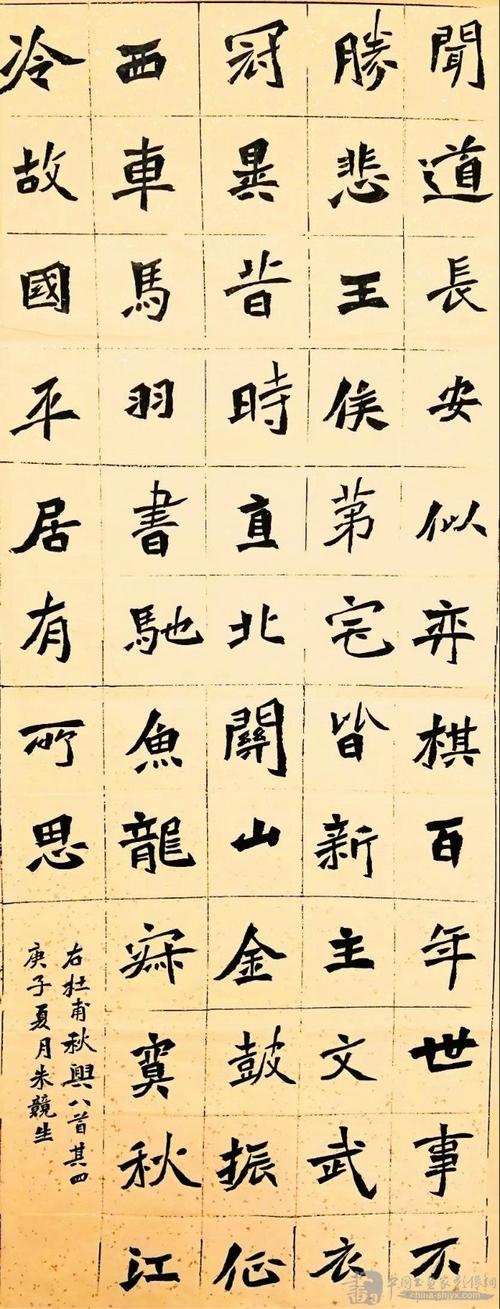 聞道長安似弈棋百年世事不
勝悲王侯第宅皆新主文武衣
冠異昔時直北關山金鼓振征
西車馬羽書馳魚龍寂寞秋江
冷故國平居有所思
右杜甫秋興八首其四
庚子夏月朱競生
中国书画家影像网
china-shjyx.com